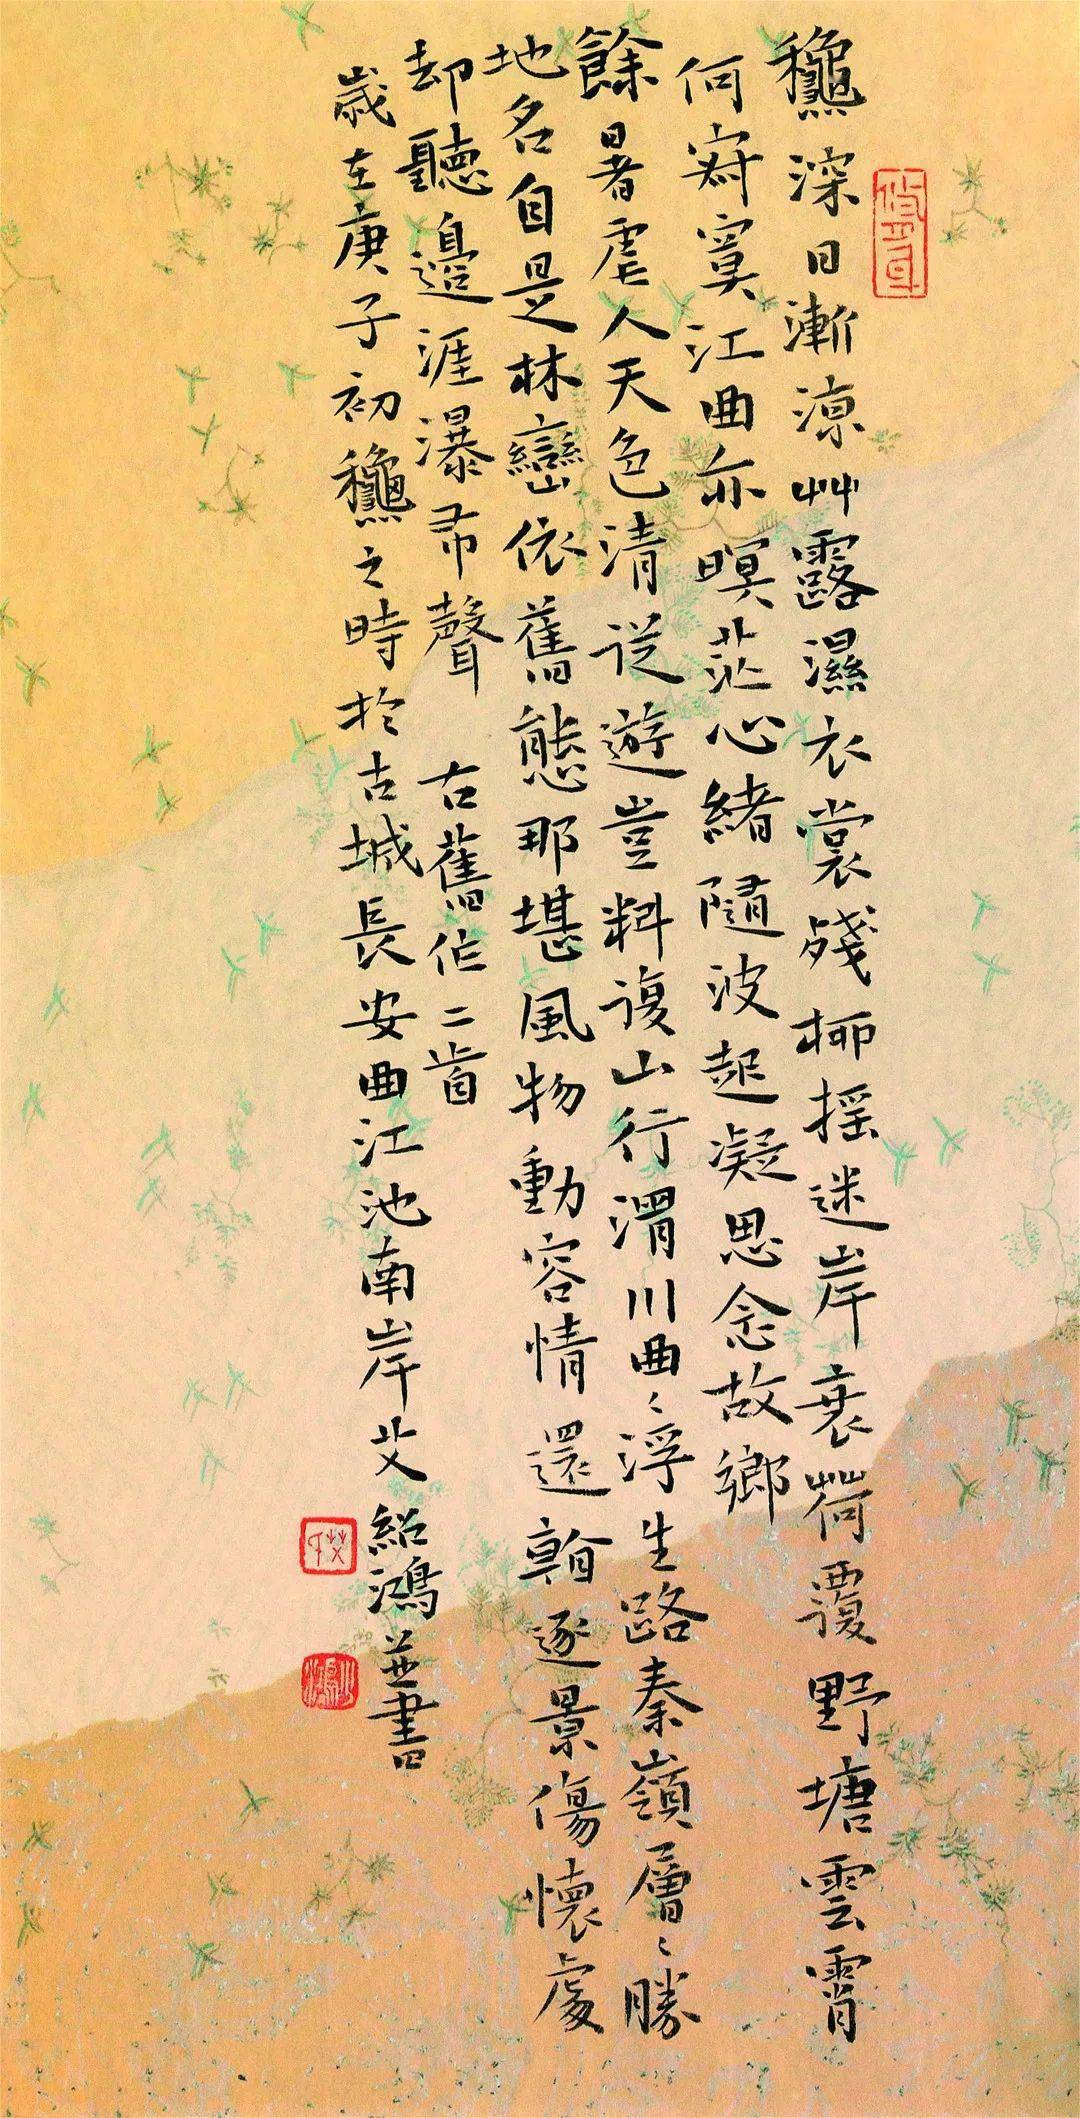 龝深日漸涼艸露濕衣裳殘柳摇迷岸衰荷覆野塘雲霄
何寂寞江曲亦暝茫心緒隨波起凝思念故鄉
餘暑虐人天色清從遊豈料復山行渭川曲〻浮生路秦嶺層〻勝
地名自是林巒依舊態那堪風物動容情還翰逐景傷懷處
却聽邊涯瀑布聲 右舊作二首
歲在庚子初龝之時於古城長安曲江池南岸艾紹鴻並書